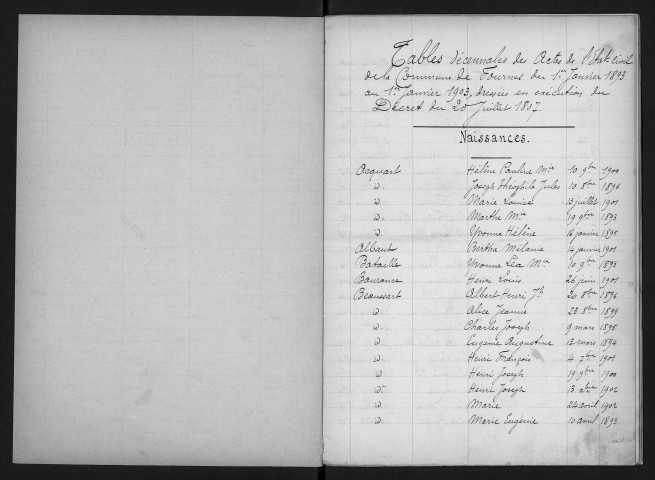 Tables décennales des Actes de l'état civil
de la Commune de Fournes du 1er Janvier 1893
au 1er Janvier 1903, dressées en exécution du
Décret du 20 Juillet 1807.
Naissances.
Acquart Hélène Pauline Mie 10 9bre 1900
id. Joseph Théophile Jules 10 8bre 1896
id. Marie Louise 13 juillet 1901
id. Marthe Mie 19 9bre 1893
id. Yvonne Hélène 16 janvier 1895
Albaut Bertha Mélanie 14 janvier 1901
Bataille Yvonne Léa Mie 10 9bre 1893
Henri Louis 26 juin 1901
Beaussart Albert Henri Jh 20 8bre 1896
id. Alice Jeanne 28 8bre 1899
id. Charles Joseph 9 mars 1895
id. Eugénie Augustine 13 mars 1894
id. Henri François 4 7bre 1901
id. Henri Joseph 19 9bre 1900
id. Henri Joseph 13 xbre 1902
id. Marie 24 avril 1902
id. Marie Eugénie 10 avril 1893